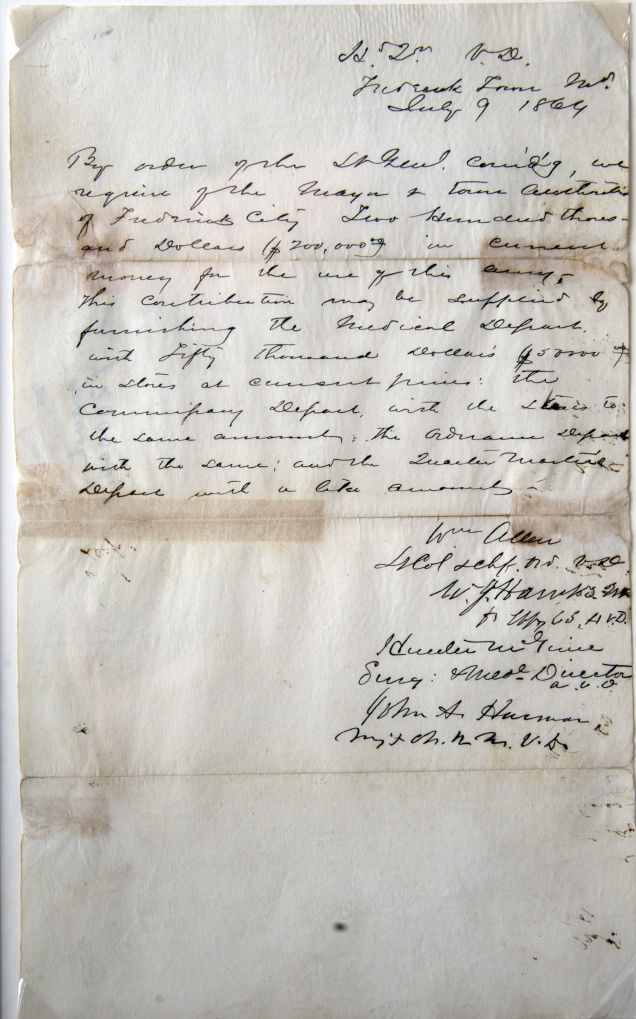 Hd Qrs V.D.
Frederick Town Md.
July 9 1864
By order of the Lt Genl. Comd'g, we
require of the Mayor & town authorities
of Frederick City Two Hundred thous-
and Dollars ($200,000) in current
money for the use of this army.
This contribution may be supplied by
furnishing the Medical Depart.
with Fifty thousand Dollars ($50000)
in stores at current prices: the
Commissary Depart. with the stores to
the same amount; the Ordnance Depart
with the same; and the Quarter Masters
Depart with a like amount -
Wm Allan
Lt Col & chf. Ord. V.D.
W. J. Hawks
A.V.D.
Hunter McGuire
Surg: & Med. Director
A.V.D.
John A. Harman,
Maj & Ch. Q. M. V.D.